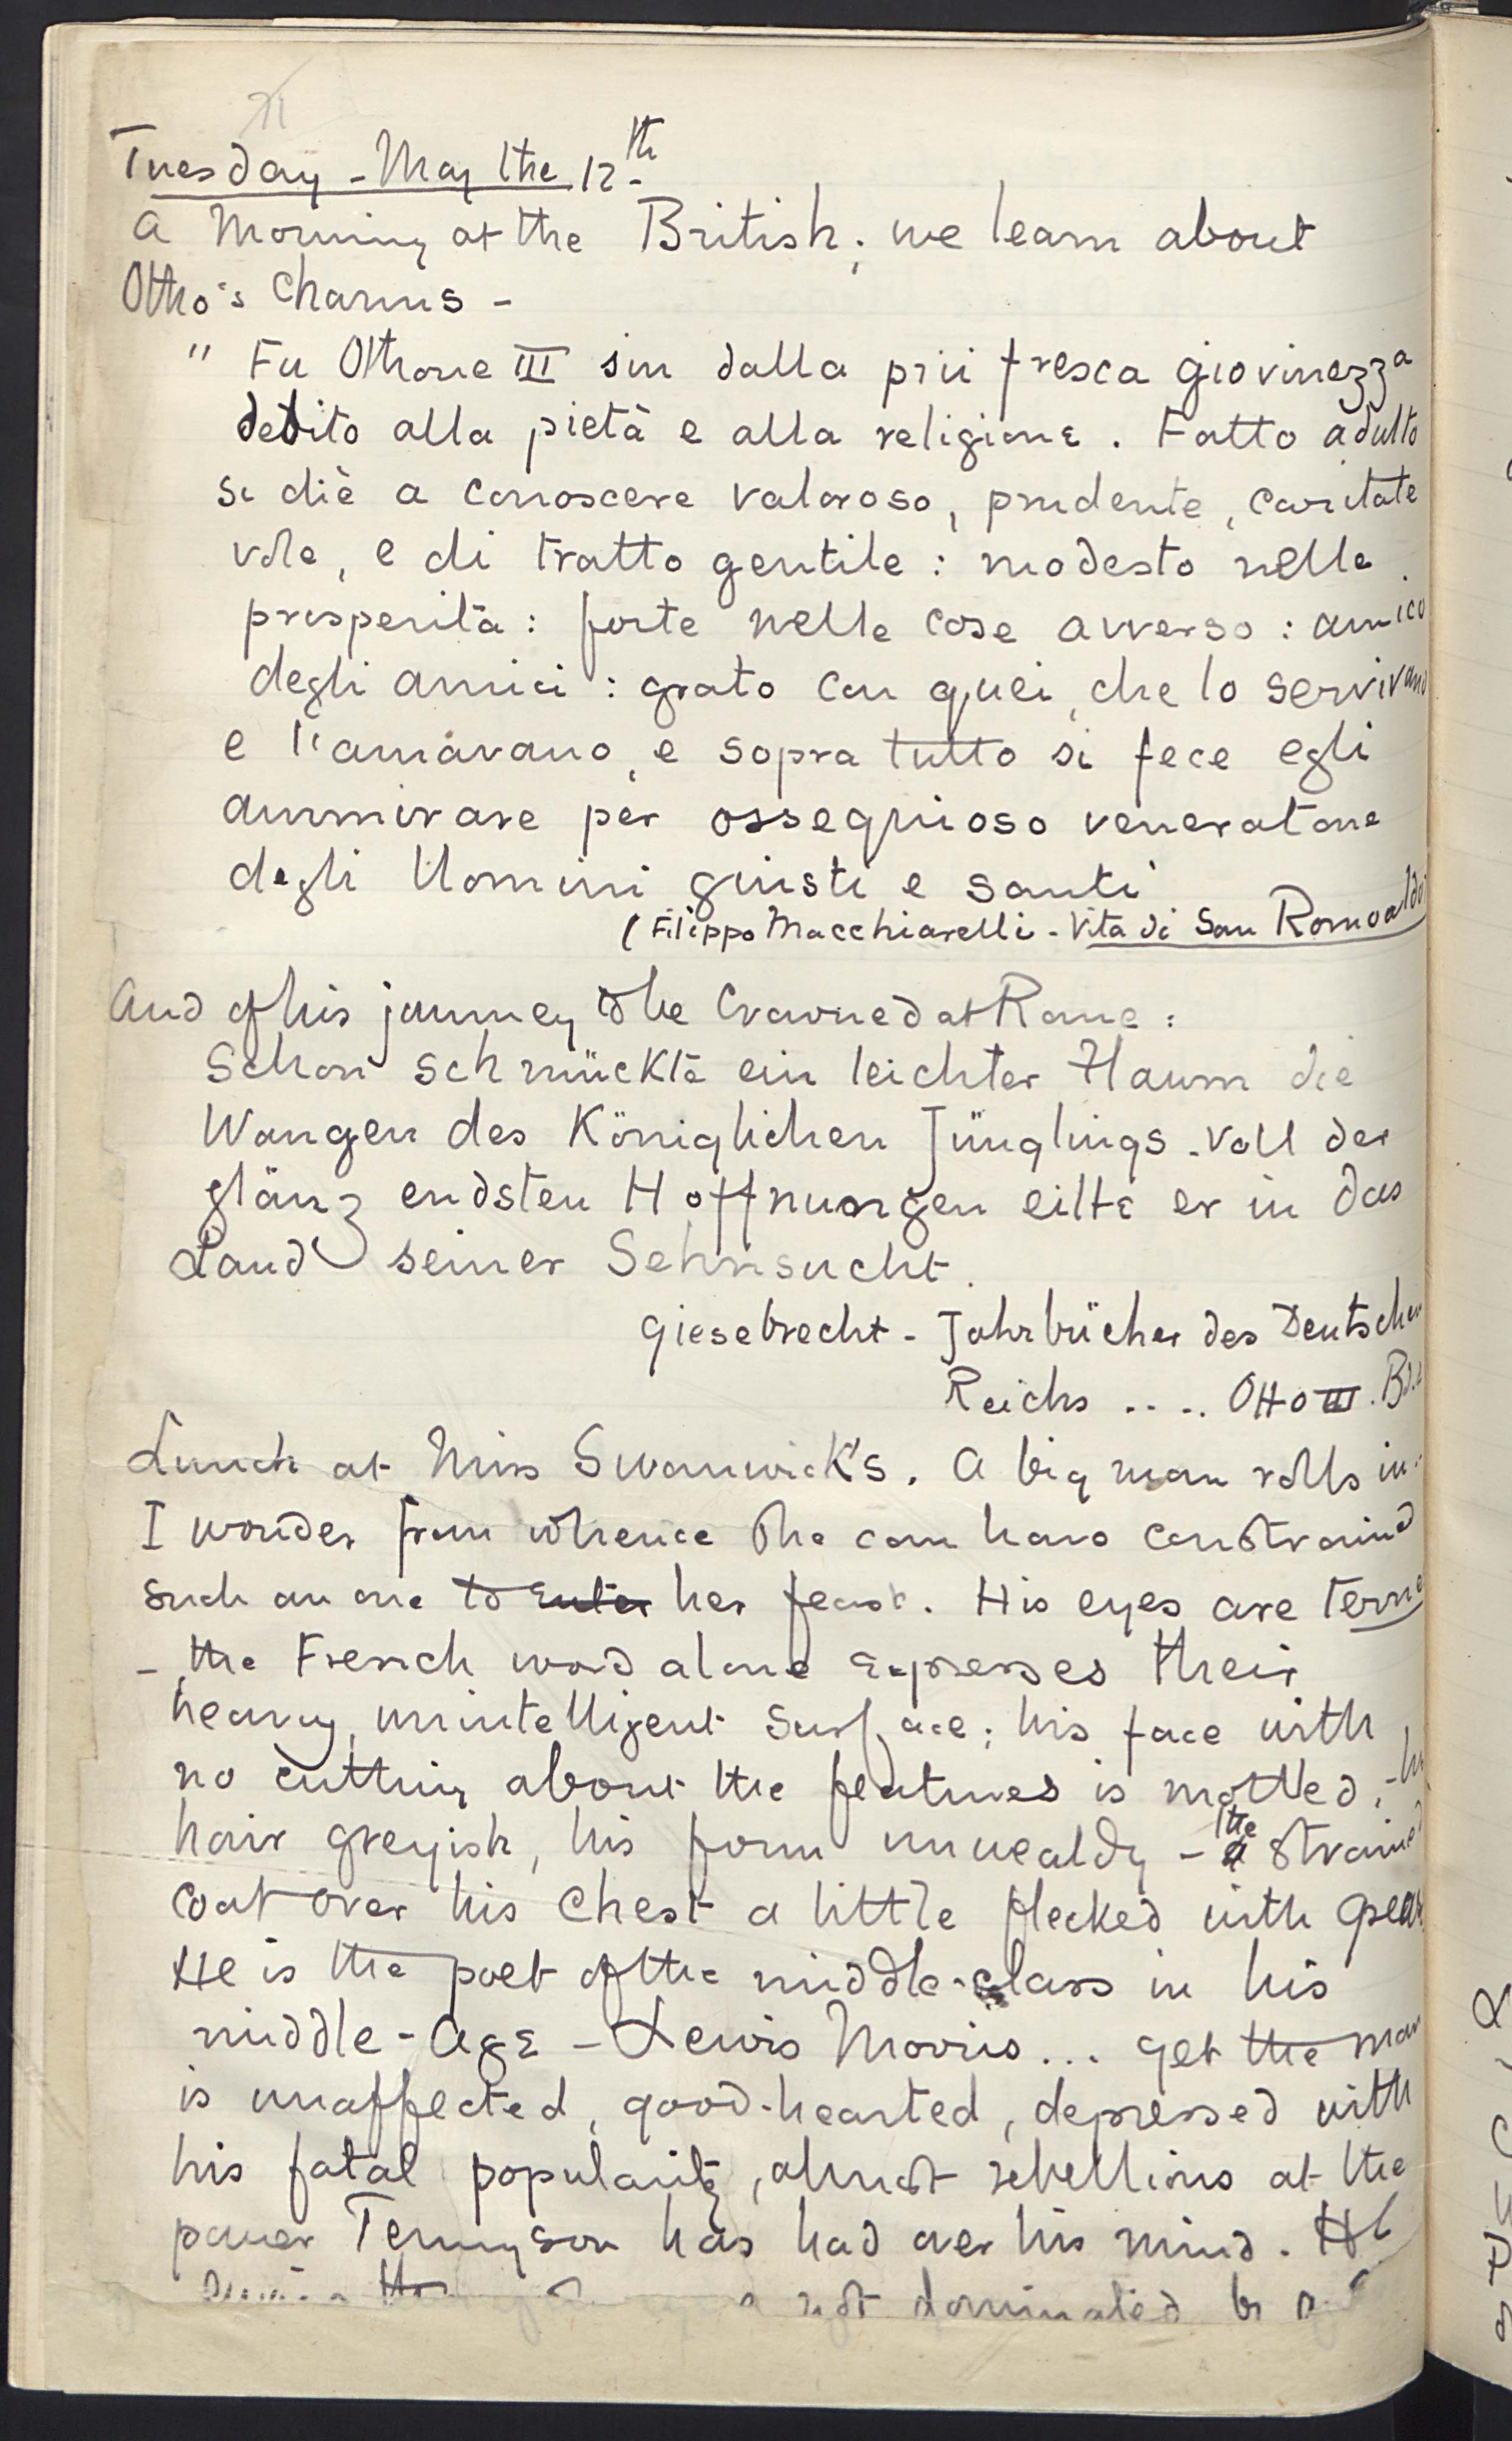 Tuesday - May the 12th.
A Morning at the British; we learn about
Otho's charms -
" Fu Othone III sin dalla più fresca giovinezza
dedito alla pietà e alla religione. Fatto adulto
si diè a conoscere valoroso, prudente, caritate
vole, e di tratto gentile: modesto nelle
prosperità: forte nelle cose avverse: amico
degli amici: grato con quei, che lo servivano
e l'amavano, e sopra tutto si fece egli
ammirare per ossequioso veneratore
degli Uomini giusti e santi
(Filippo Macchiarelli - Vita di San Romoaldo
And of his journey to be Crowned at Rome:
Schon schmückte ein leichter Flaum die
Wangen des Königlichen Jünglings. Voll der
glänzendsten Hoffnungen eilte er in das
Land seiner Sehnsucht.
Giesebrecht - Jahrbücher des Deutschen
Reichs .... Otto III.
Lunch at Miss Swanwick's. A big man rolls in.
I wonder from whence she can have constrained
such an one to enter her feast. His eyes are terne
- the French word alone expresses their
heavy, unintelligent surface; his face with
no cutting about the features is mottled, -
hair greyish, his form unwealdy - a the strained
coat over his chest a little flecked with
He is the poet of the middle-class in his
middle-age - Lewis Morris... yet the man
is unaffected, good-hearted, depressed with
his fatal popularity, almost rebellious at the
power Tennyson has had over his mind. He
not dominated